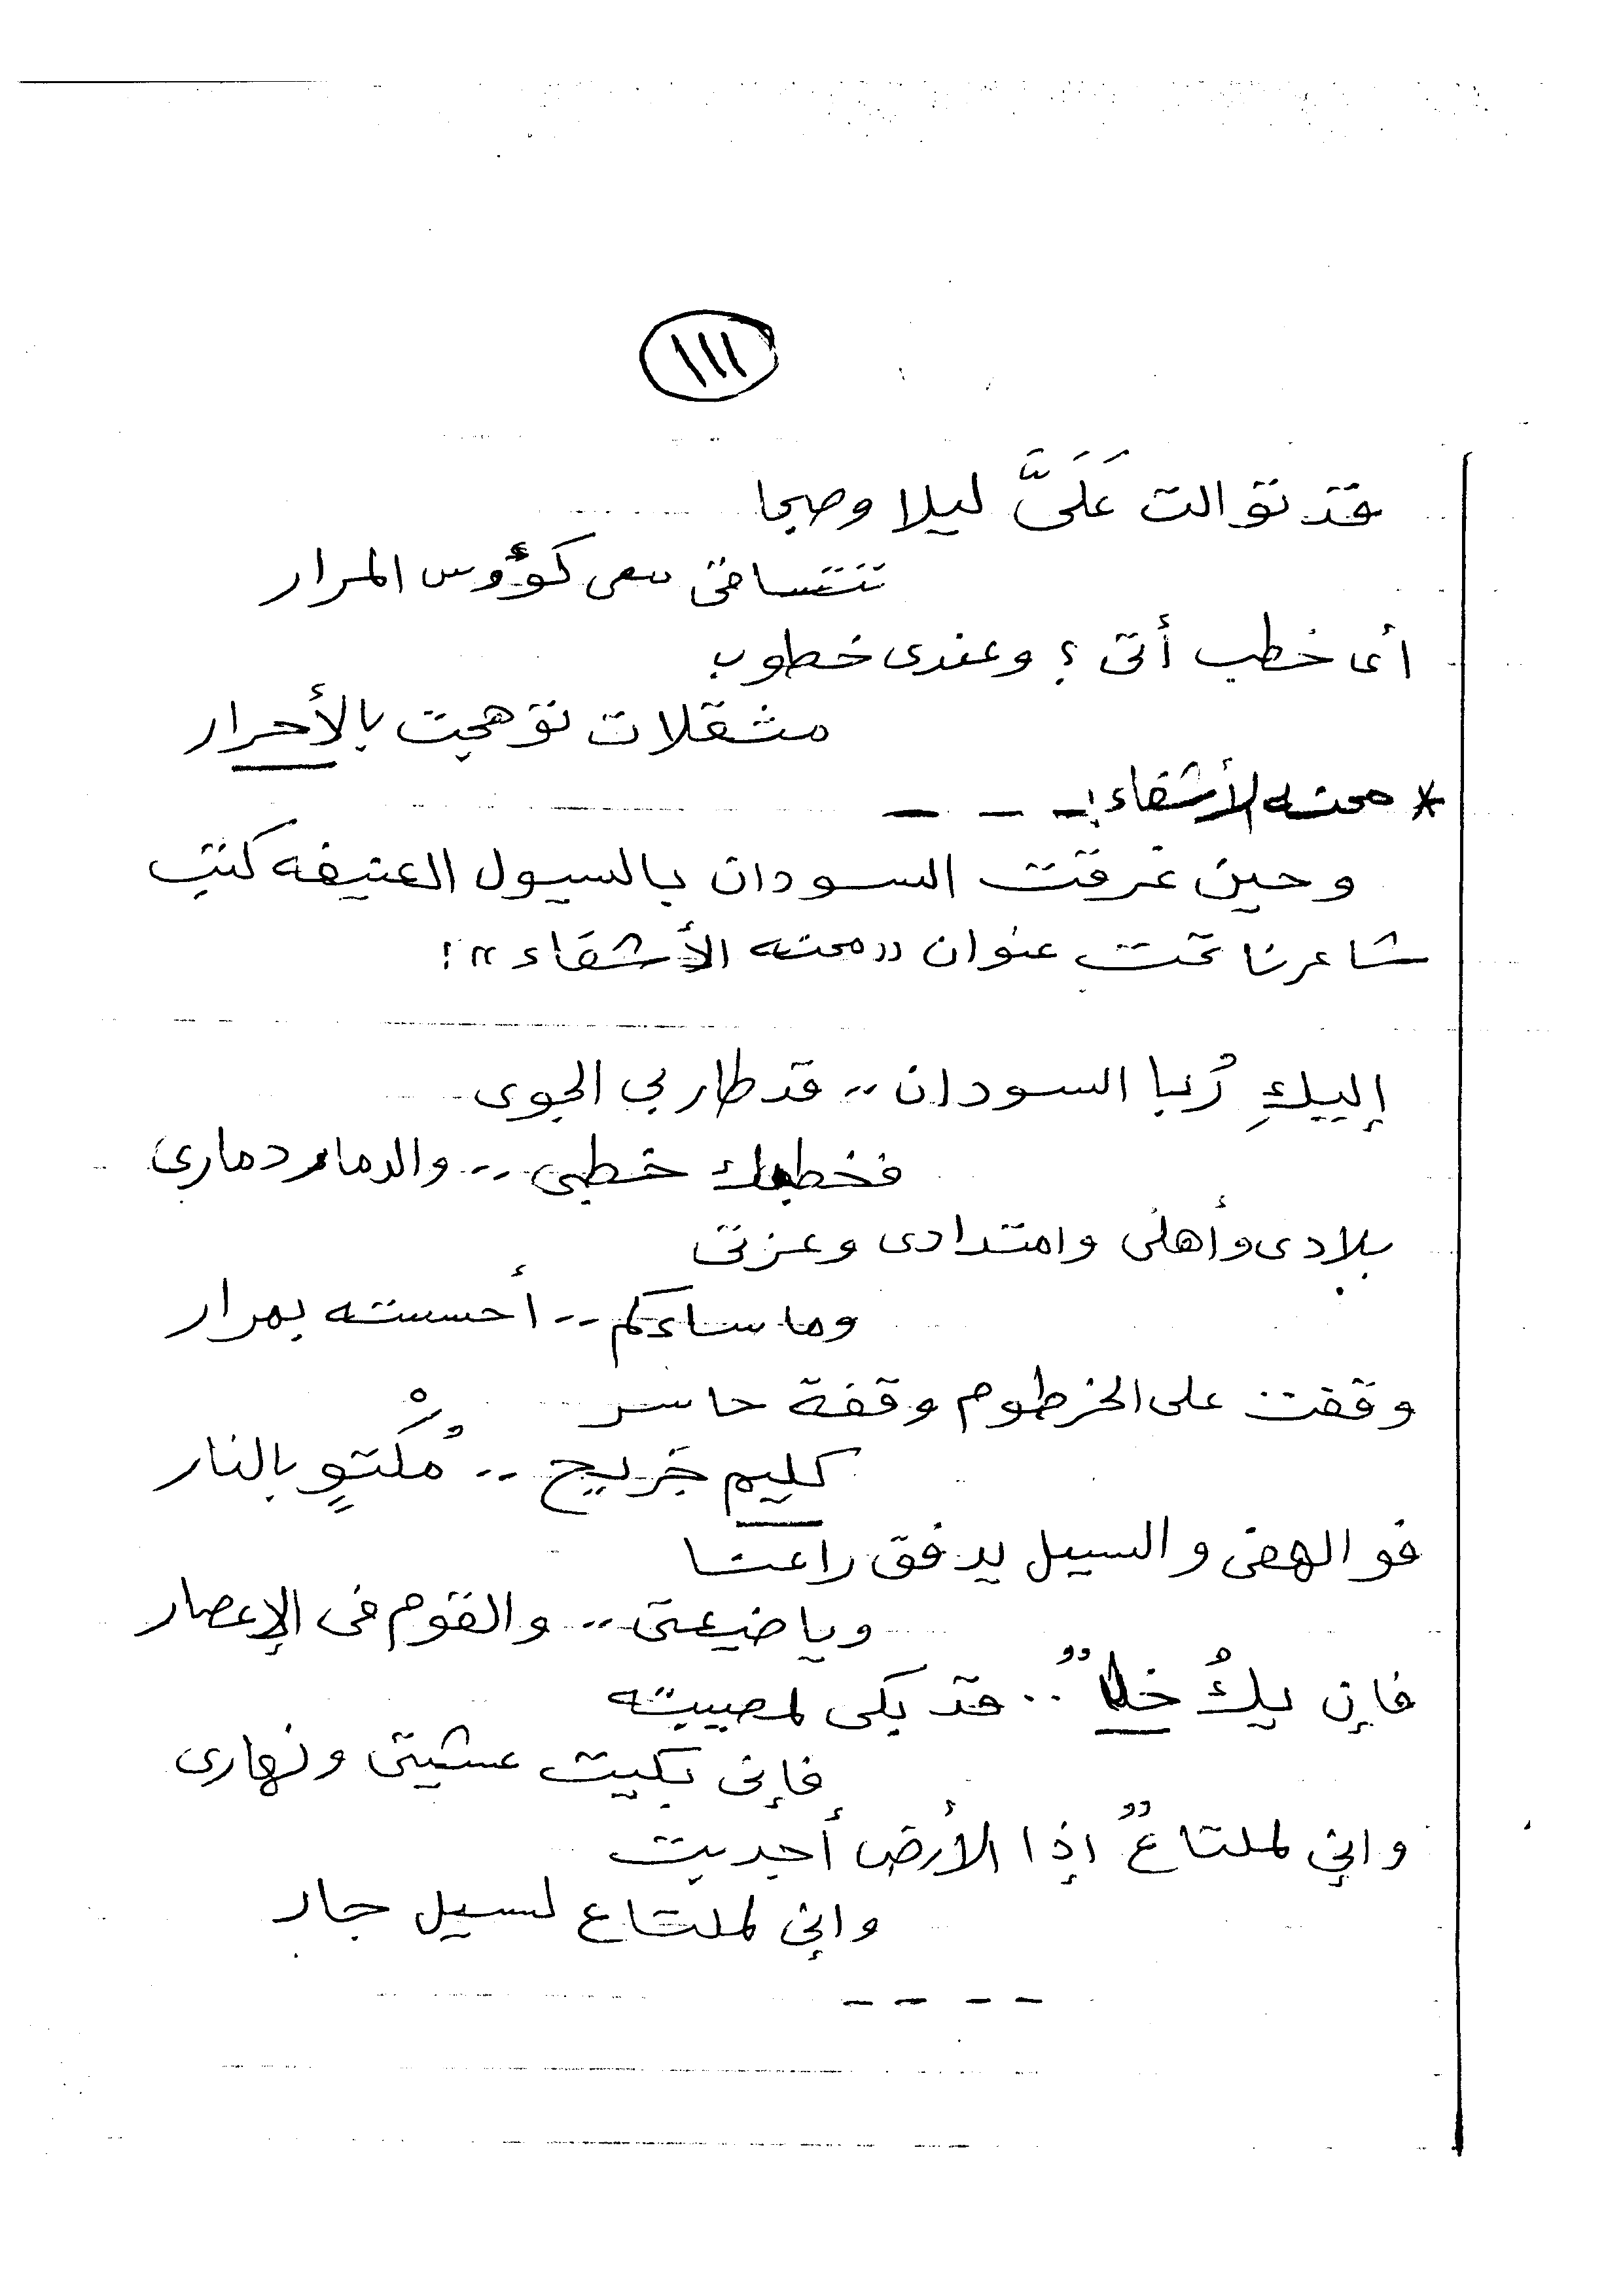 ١١١
قد توالت عَلَىَّ ليلا وصبحا
تتساقى معى كؤوس المرار
أى خطب أتى ؟ وعندى خطوب
مثقلات توهجت بالأحرار
* محنة الأشقاء :ـ ـ ـ ـ
وحين غرقت السودان بالسيول العنيفه كتب
شاعرنا تحت عنوان "محنه الأشقاء" :
إليكِ رُبا السودان .. قد طار بي الجوى
فخطبك خطبى .. والدمار دمارى
بلادى وأهلى وامتدادى وعزتى
وما ساءكم .. أحسسته بمرار
وقفت على الخرطوم وقفة حاسر
كليم جريح .. مُكْتوٍ بالنار
فوالهفى والسيل يدفق راعشا
ويا ضيعتى .. والقوم فى الإعصار
فإن يكُ خلٌ .. قد بكى لمصيبته
فإنى بكيت عشيتى ونهارى
وإني لملتاعٌ إذا الأرض أجدبت
وإنى لملتاع لسيل جار
ـ ـ ـ ـ